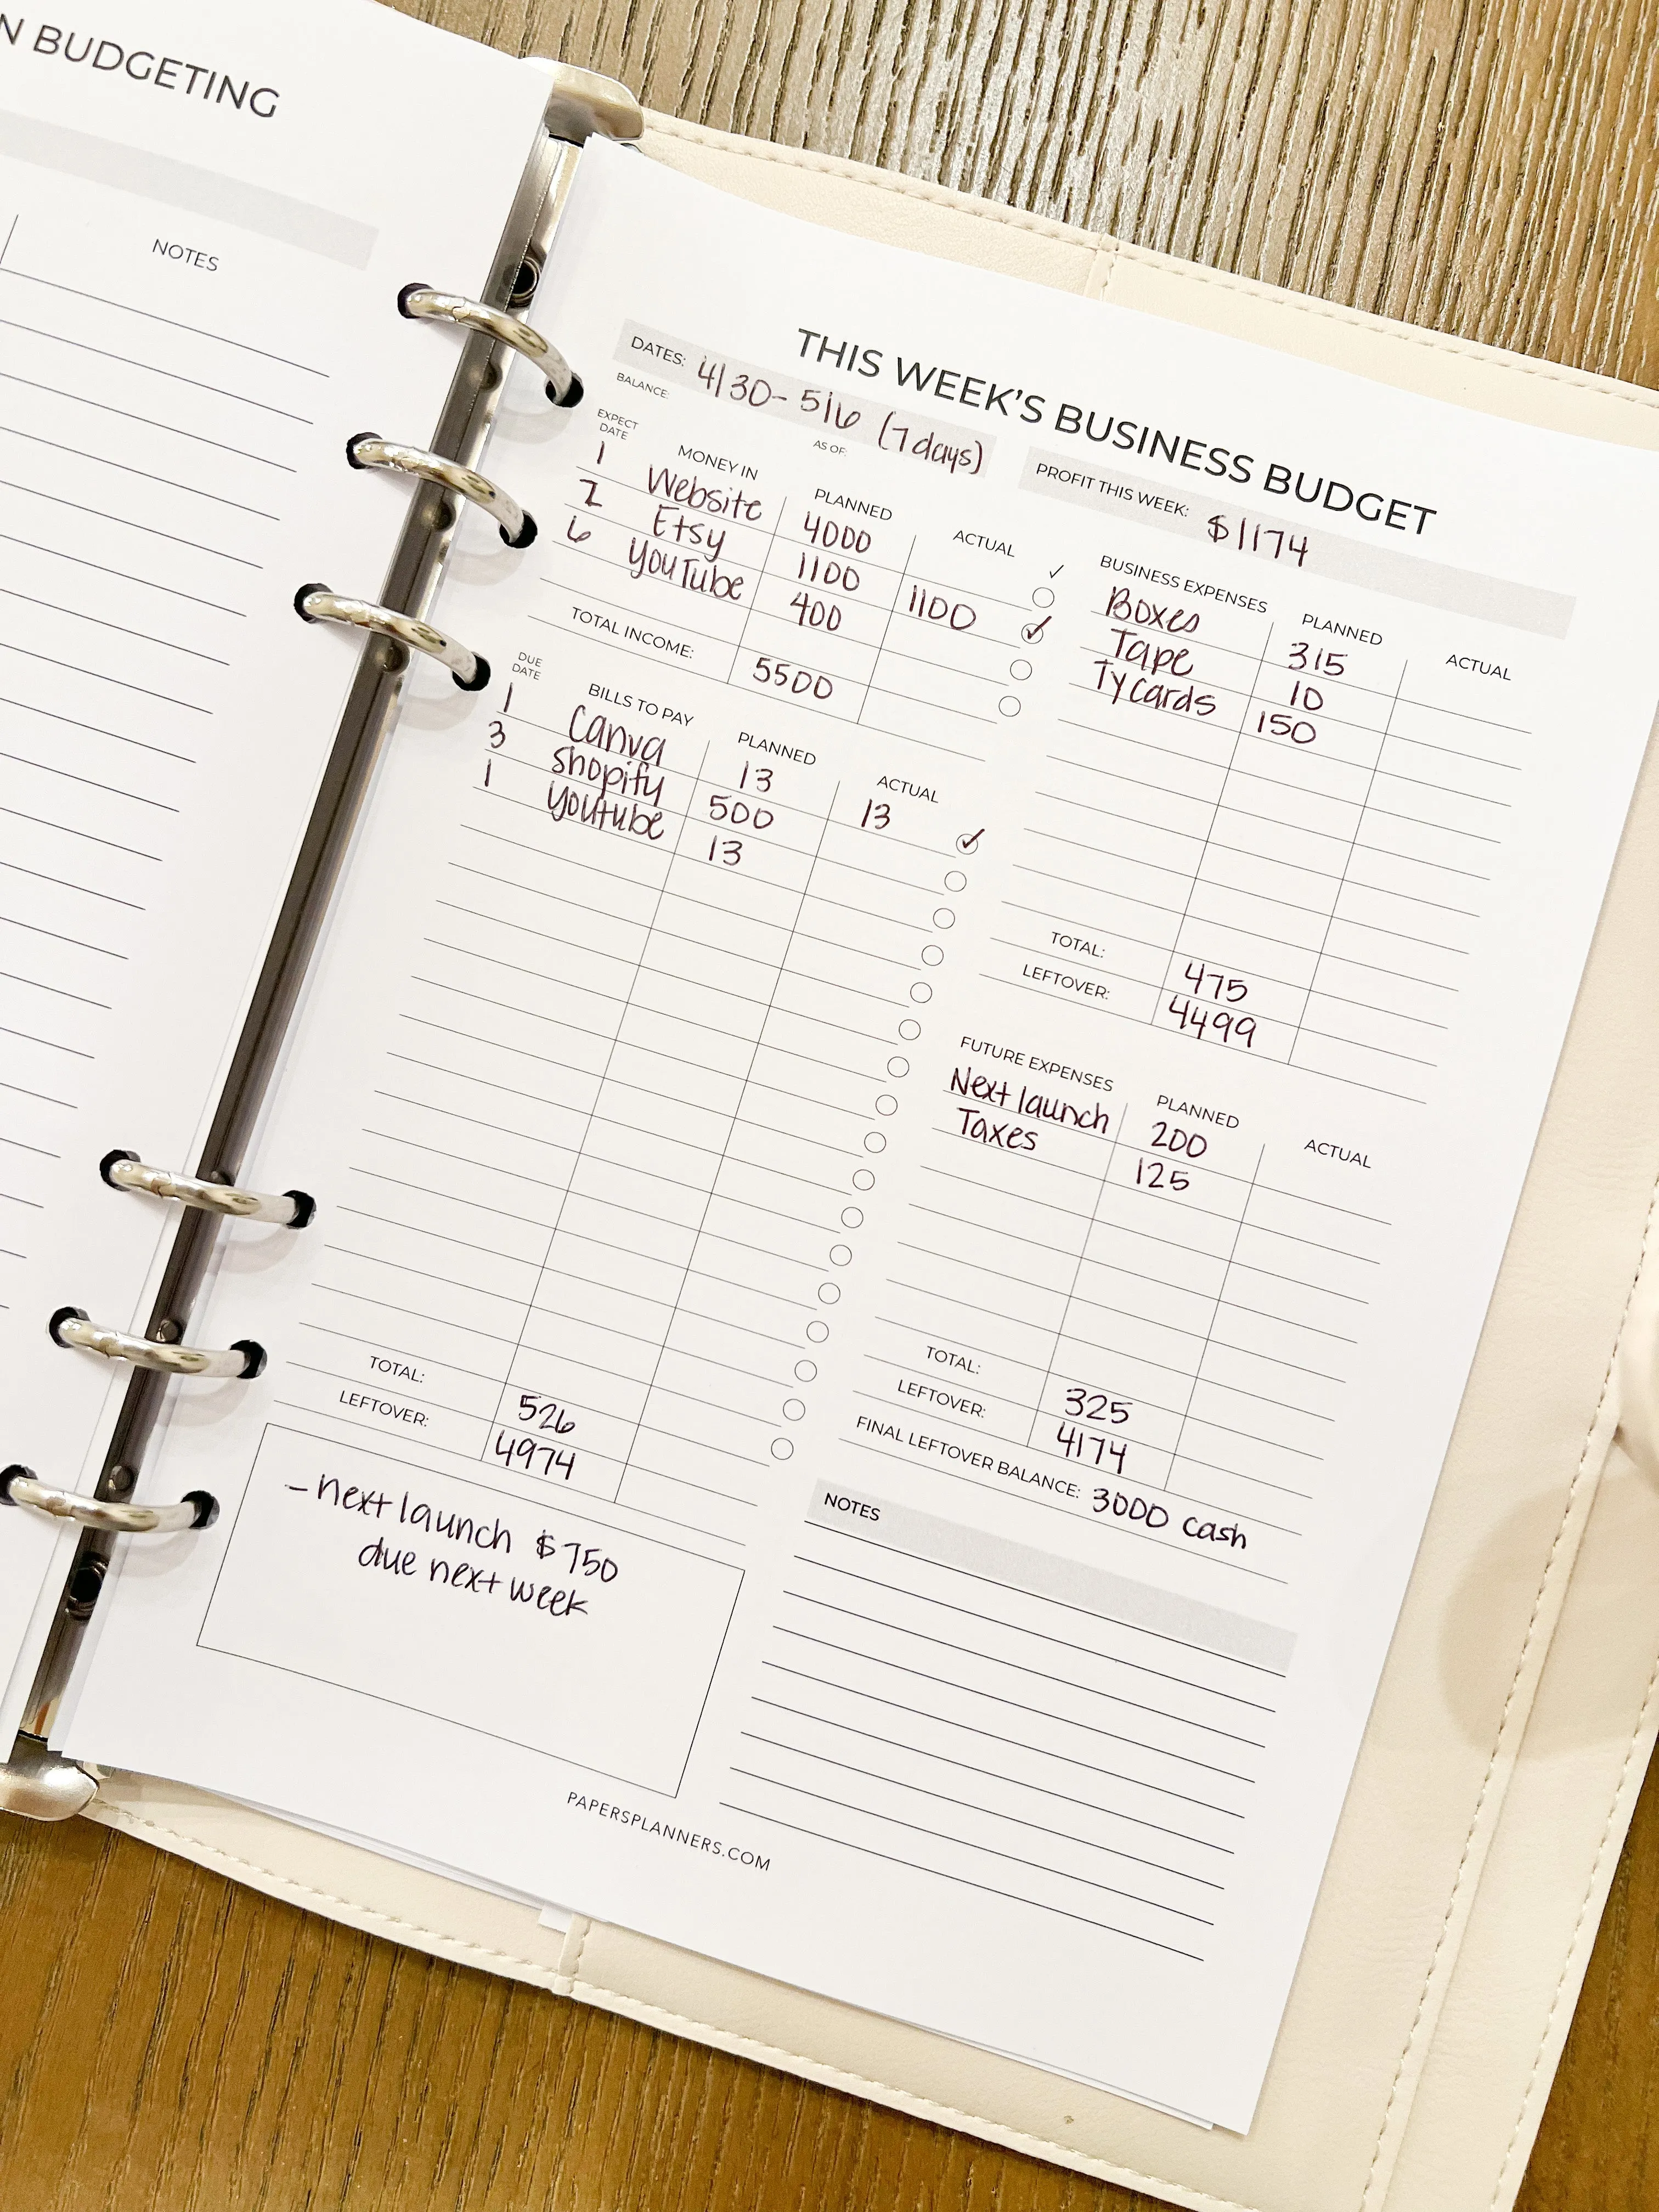 N BUDGETING
NOTES
THIS WEEK'S BUSINESS BUDGET
DATES: 4/30 - 5/6 (7 days)
BALANCE:
AS OF:
PROFIT THIS WEEK: $1174
EXPECT DATE MONEY IN PLANNED ACTUAL ✓
1 Website 4000
2 Etsy 1100 1100 ✓
6 YouTube 400
TOTAL INCOME: 5500
DUE DATE BILLS TO PAY PLANNED ACTUAL
1 Canva 13 13 ✓
3 Shopify 500
1 Youtube 13
TOTAL: 526
LEFTOVER: 4974
- next launch $750
due next week
BUSINESS EXPENSES PLANNED ACTUAL
Boxes 315
Tape 10
Ty Cards 150
TOTAL: 475
LEFTOVER: 4499
FUTURE EXPENSES PLANNED ACTUAL
Next launch 200
Taxes 125
TOTAL: 325
LEFTOVER: 4174
FINAL LEFTOVER BALANCE: 3000 cash
NOTES
PAPERSPLANNERS.COM